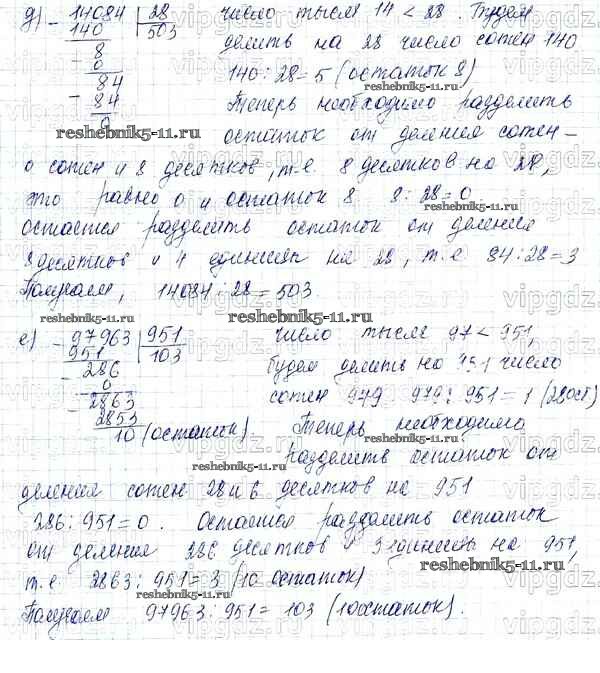 д) - 14084 | 28 число тысяч 14 < 28. Будем
140 503 делить на 28 число сотен 140
8
- 0 140 : 28 = 5 (остаток 8)
84 Теперь необходимо разделить
- 84
0 остаток от деления сотен –
reshebnik5-11.ru
0 сотен и 8 десятков, т.е. 8 десятков на 28,
это равно 0 и остаток 8 8 : 28 = 0
reshebnik5-11.ru
остается разделить остаток от деления
8 десятков и 4 единицы на 28, т.е 84 : 28 = 3
Получаем, 14084 : 28 = 503.
reshebnik5-11.ru
е) - 97963 | 951 число тысяч 97 < 951,
951 103 будем делить на 951 число
- 286
0 сотен 979 979 : 951 = 1 (28 ост)
reshebnik5-11.ru
- 2863
2853 Теперь необходимо
10 (остаток). разделить остаток от
reshebnik5-11.ru
деления сотен 28 и 6 десятков на 951
286 : 951 = 0. Остается разделить остаток
от деления 286 десятков и 3 единиц на 951,
reshebnik5-11.ru
т.е 2863 : 951 = 3 (10 остаток)
Получаем 97963 : 951 = 103 (10 остаток).
reshebnik5-11.ru